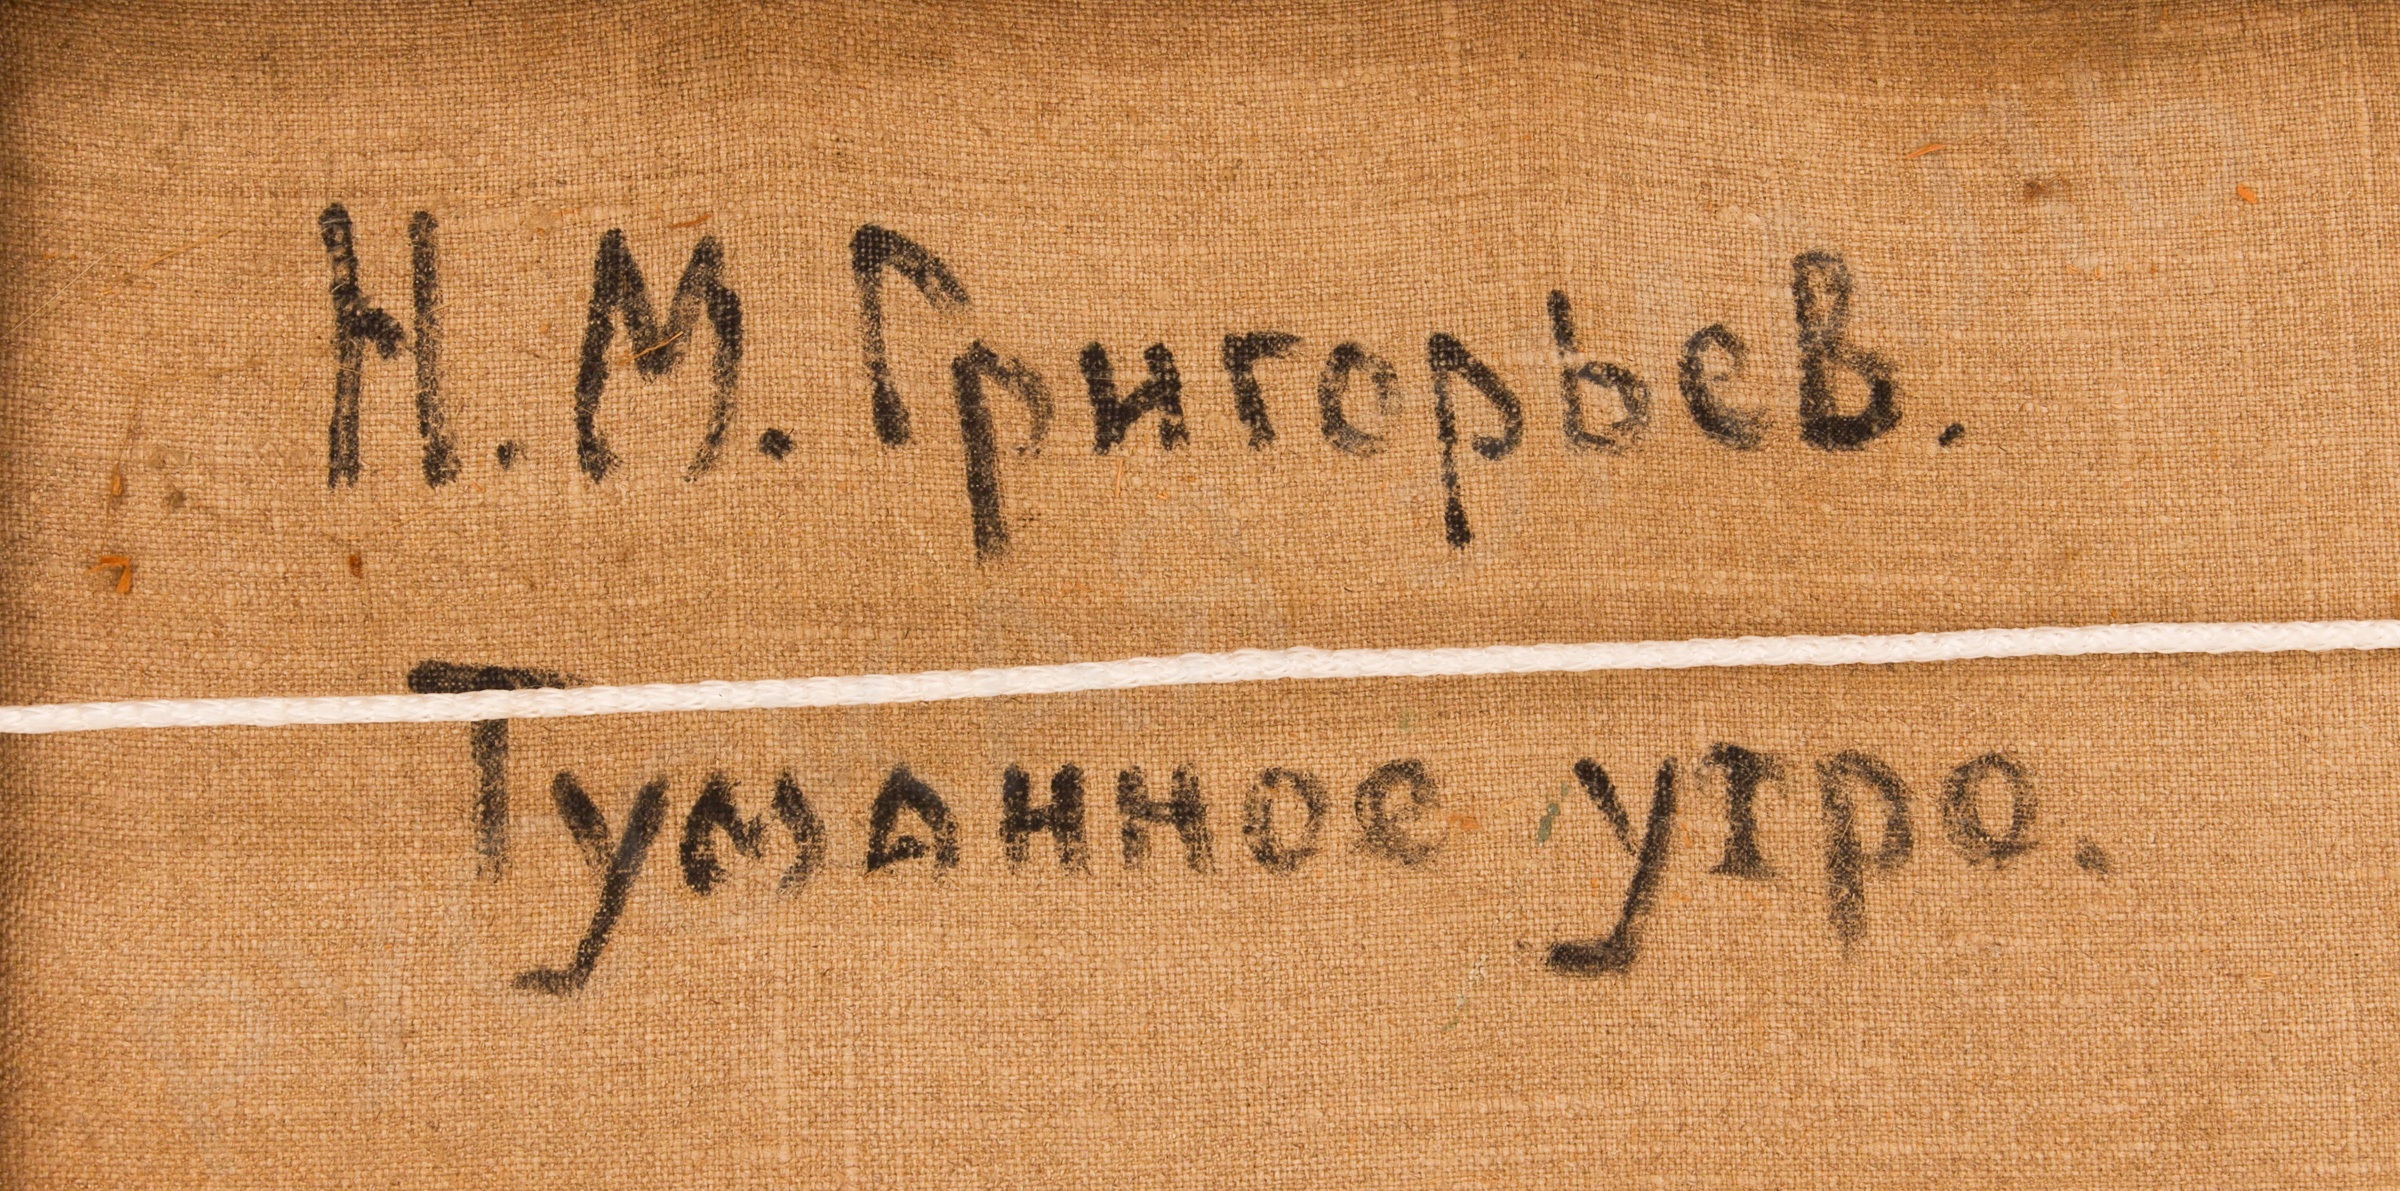 Н. М. Григорьев.
Туманное утро.